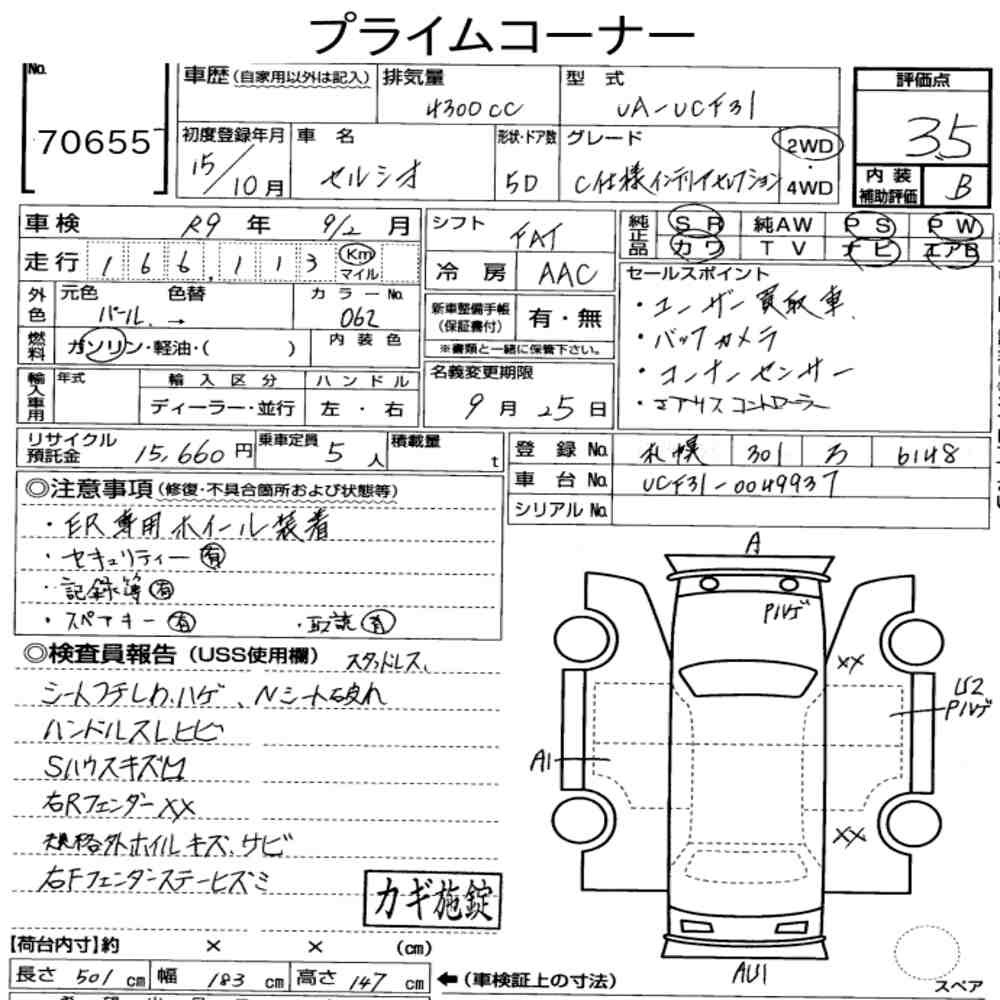 プライムコーナー
No.
70655
車歴(自家用以外は記入)
排気量
4300cc
型 式
UA-UCF31
評価点
3.5
内装補助評価
B
初度登録年月
15/10月
車 名
セルシオ
形状・ドア数
5D
グレード
C仕様インテリアセレクション
2WD
・
4WD
車検
R9 年 9/2 月
走行
166,113
Km
マイル
シフト
FAT
冷房
AAC
純正品
SR 純AW PS PW
カワ TV ナビ エアB
外色
元色 色替
パール. →
カラーNo.
062
燃料
ガソリン・軽油・( )
内装色
新車整備手帳
(保証書付)
有・無
※書類と一緒に保管下さい。
セールスポイント
・ユーザー買取車
・バックカメラ
・コーナーセンサー
・エアサスコントローラー
輸入車用
年式
輸入区分
ディーラー・並行
ハンドル
左・右
名義変更期限
9月25日
リサイクル預託金
15,660円
乗車定員
5人
積載量
t
登録No.
札幌 301 ろ 6148
車台No.
UCF31-0049937
シリアルNo.
◎注意事項(修復・不具合箇所および状態等)
・ER専用ホイール装着
・セキュリティー有
・記録簿有
・スペアキー有 ・取説有
◎検査員報告(USS使用欄) スタッドレス、
シートフチしわ.ハゲ、Nシート破れ
ハンドルスレヒビ
Sハウスキズ凹
右Rフェンダーxx
規格外ホイルキズ、サビ
右Fフェンダーステーヒズミ
カギ施錠
A
Pハゲ
xx
U2
Pハゲ
A1
xx
AU1
スペア
【荷台内寸】約 × × (cm)
長さ 501 cm 幅 183 cm 高さ 147 cm
←(車検証上の寸法)